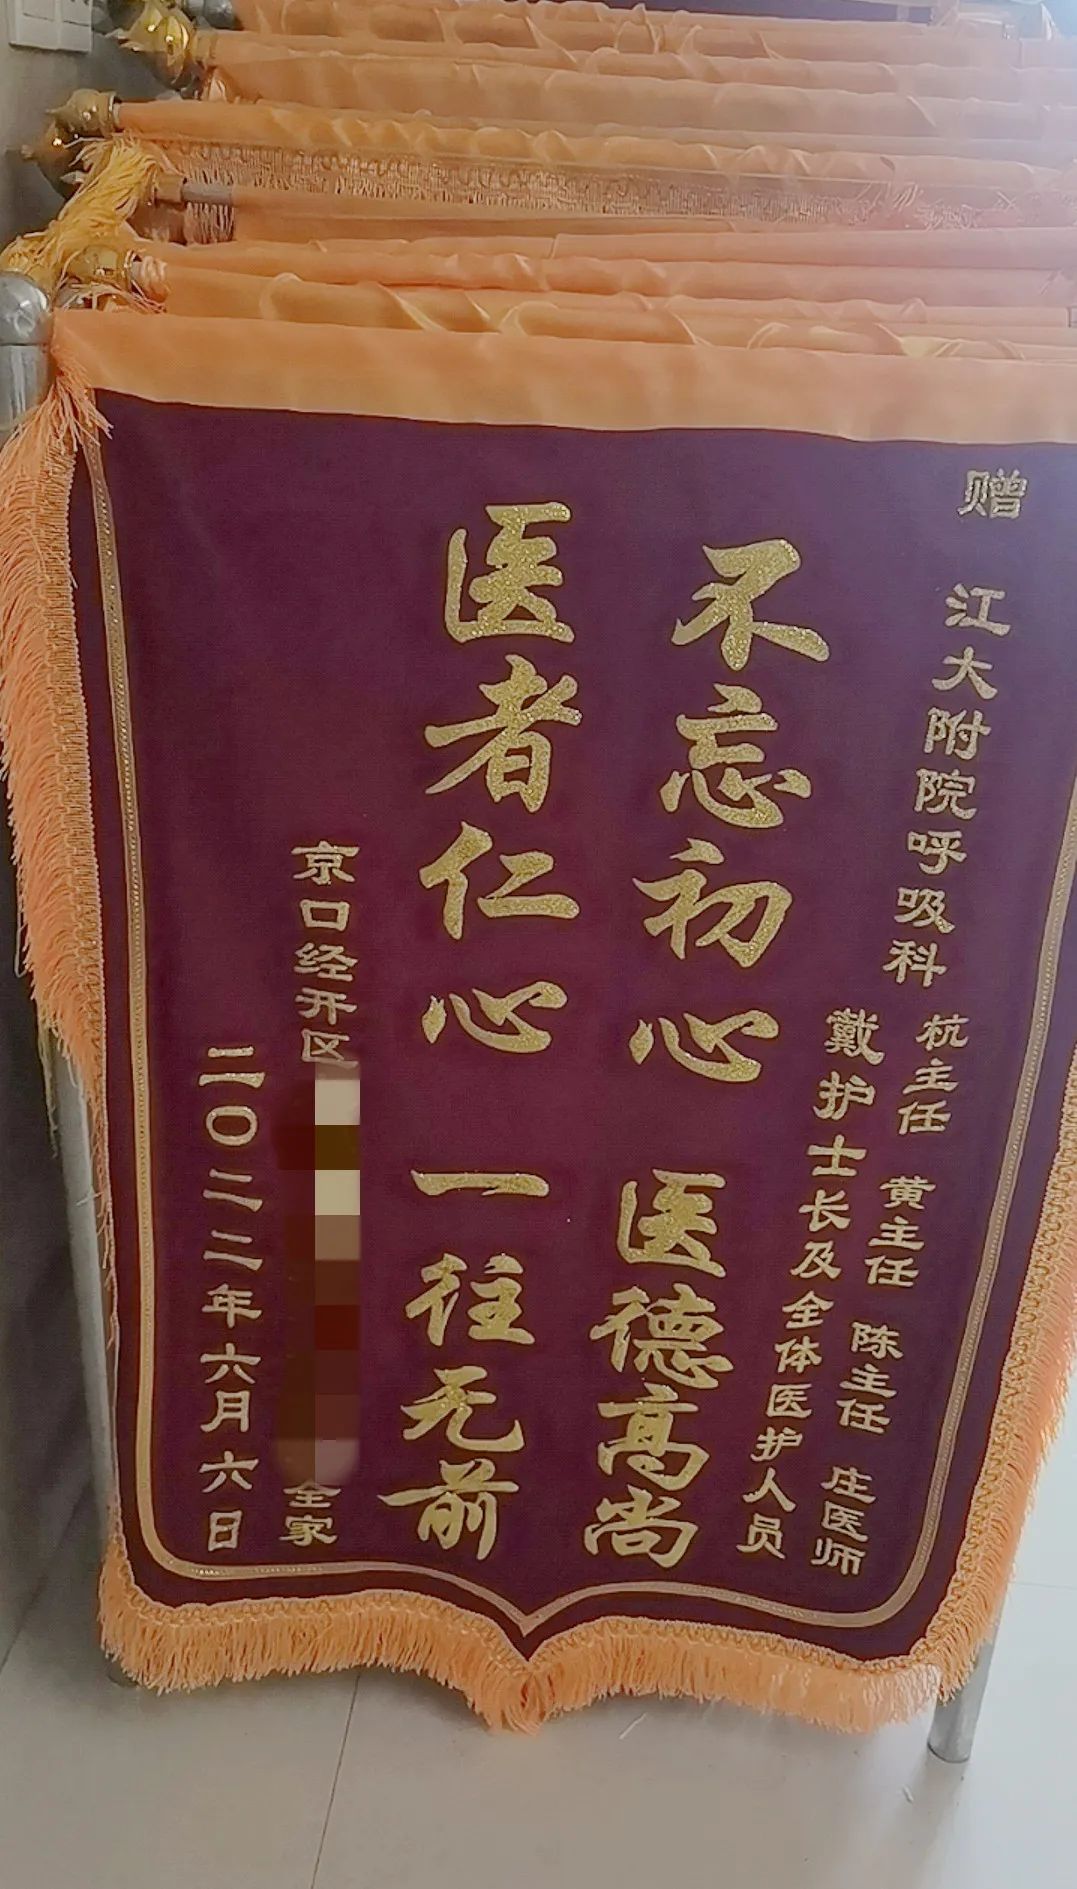 赠 江大附院呼吸科 杭主任 黄主任 陈主任 庄医师
戴护士长及全体医护人员
不忘初心 医德高尚
医者仁心 一往无前
京口经开区
全家
二〇二二年六月六日